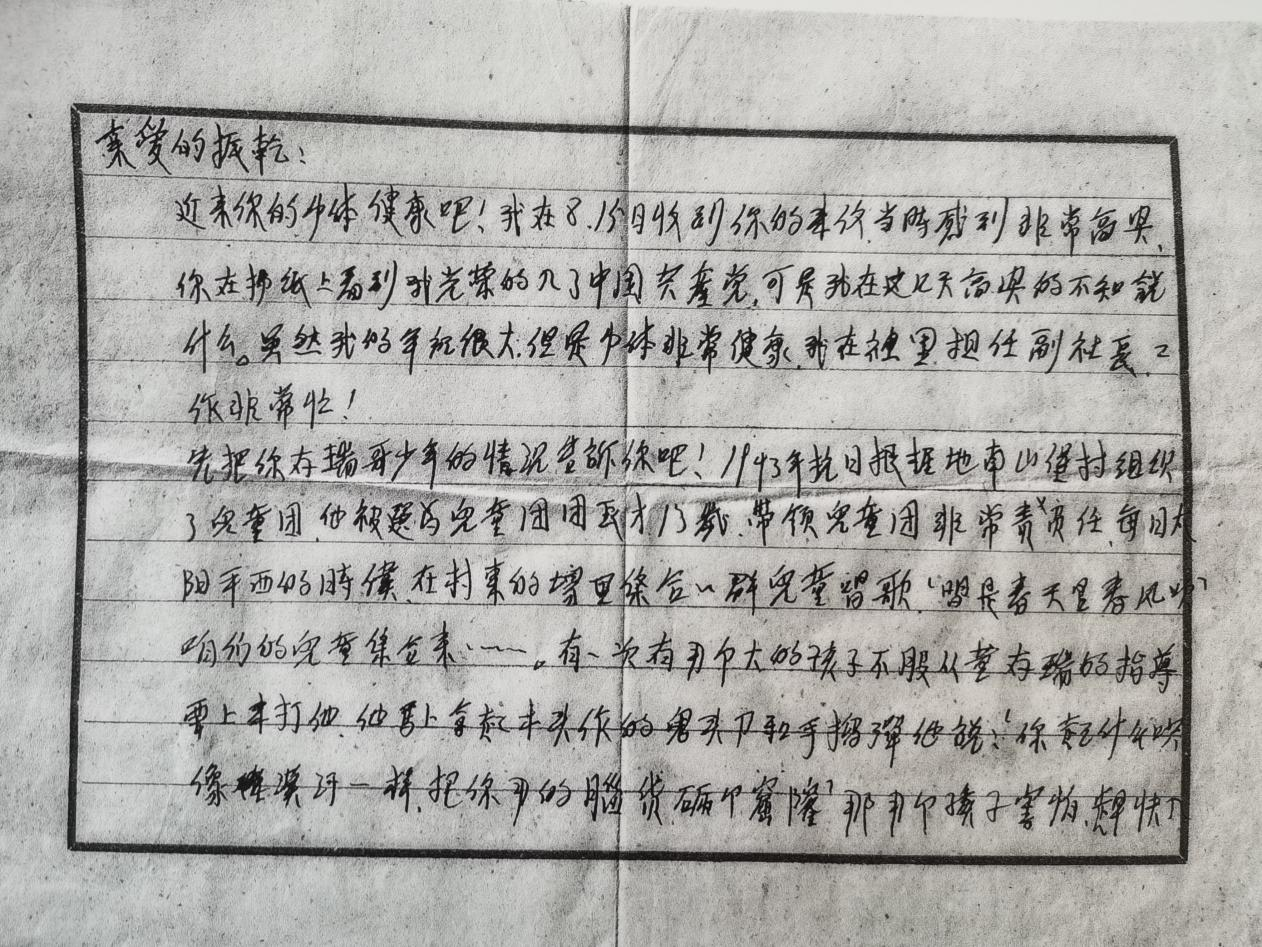 亲爱的振乾：
近来你的身体健康吧！我在8.15日收到你的来信，当时感到非常高兴，
你在报纸上看到我光荣的入了中国共产党，可是我在这几天高兴的不知说
什么。虽然我的年纪很大，但是身体非常健康，我在社里担任副社长，工
作非常忙！
先把你存瑞哥少年的情况告訴你吧！1943年抗日根据地南山堡村组织
了兒童团，他被选为兒童团团長才13歲，带领兒童团非常责负任，每日太
阳平西的時候，在村東的場里集合一群兒童唱歌，“是春天里春风吹
咱们的兒童集合来……。有一次有两个大的孩子不服从董存瑞的指导
要上来打他，他馬上拿起木头作的鬼头刀和手榴弹他說：“你起什么哄
像漢奸一样，把你两的腦袋砸个窟隆”那两个孩子害怕，趕快